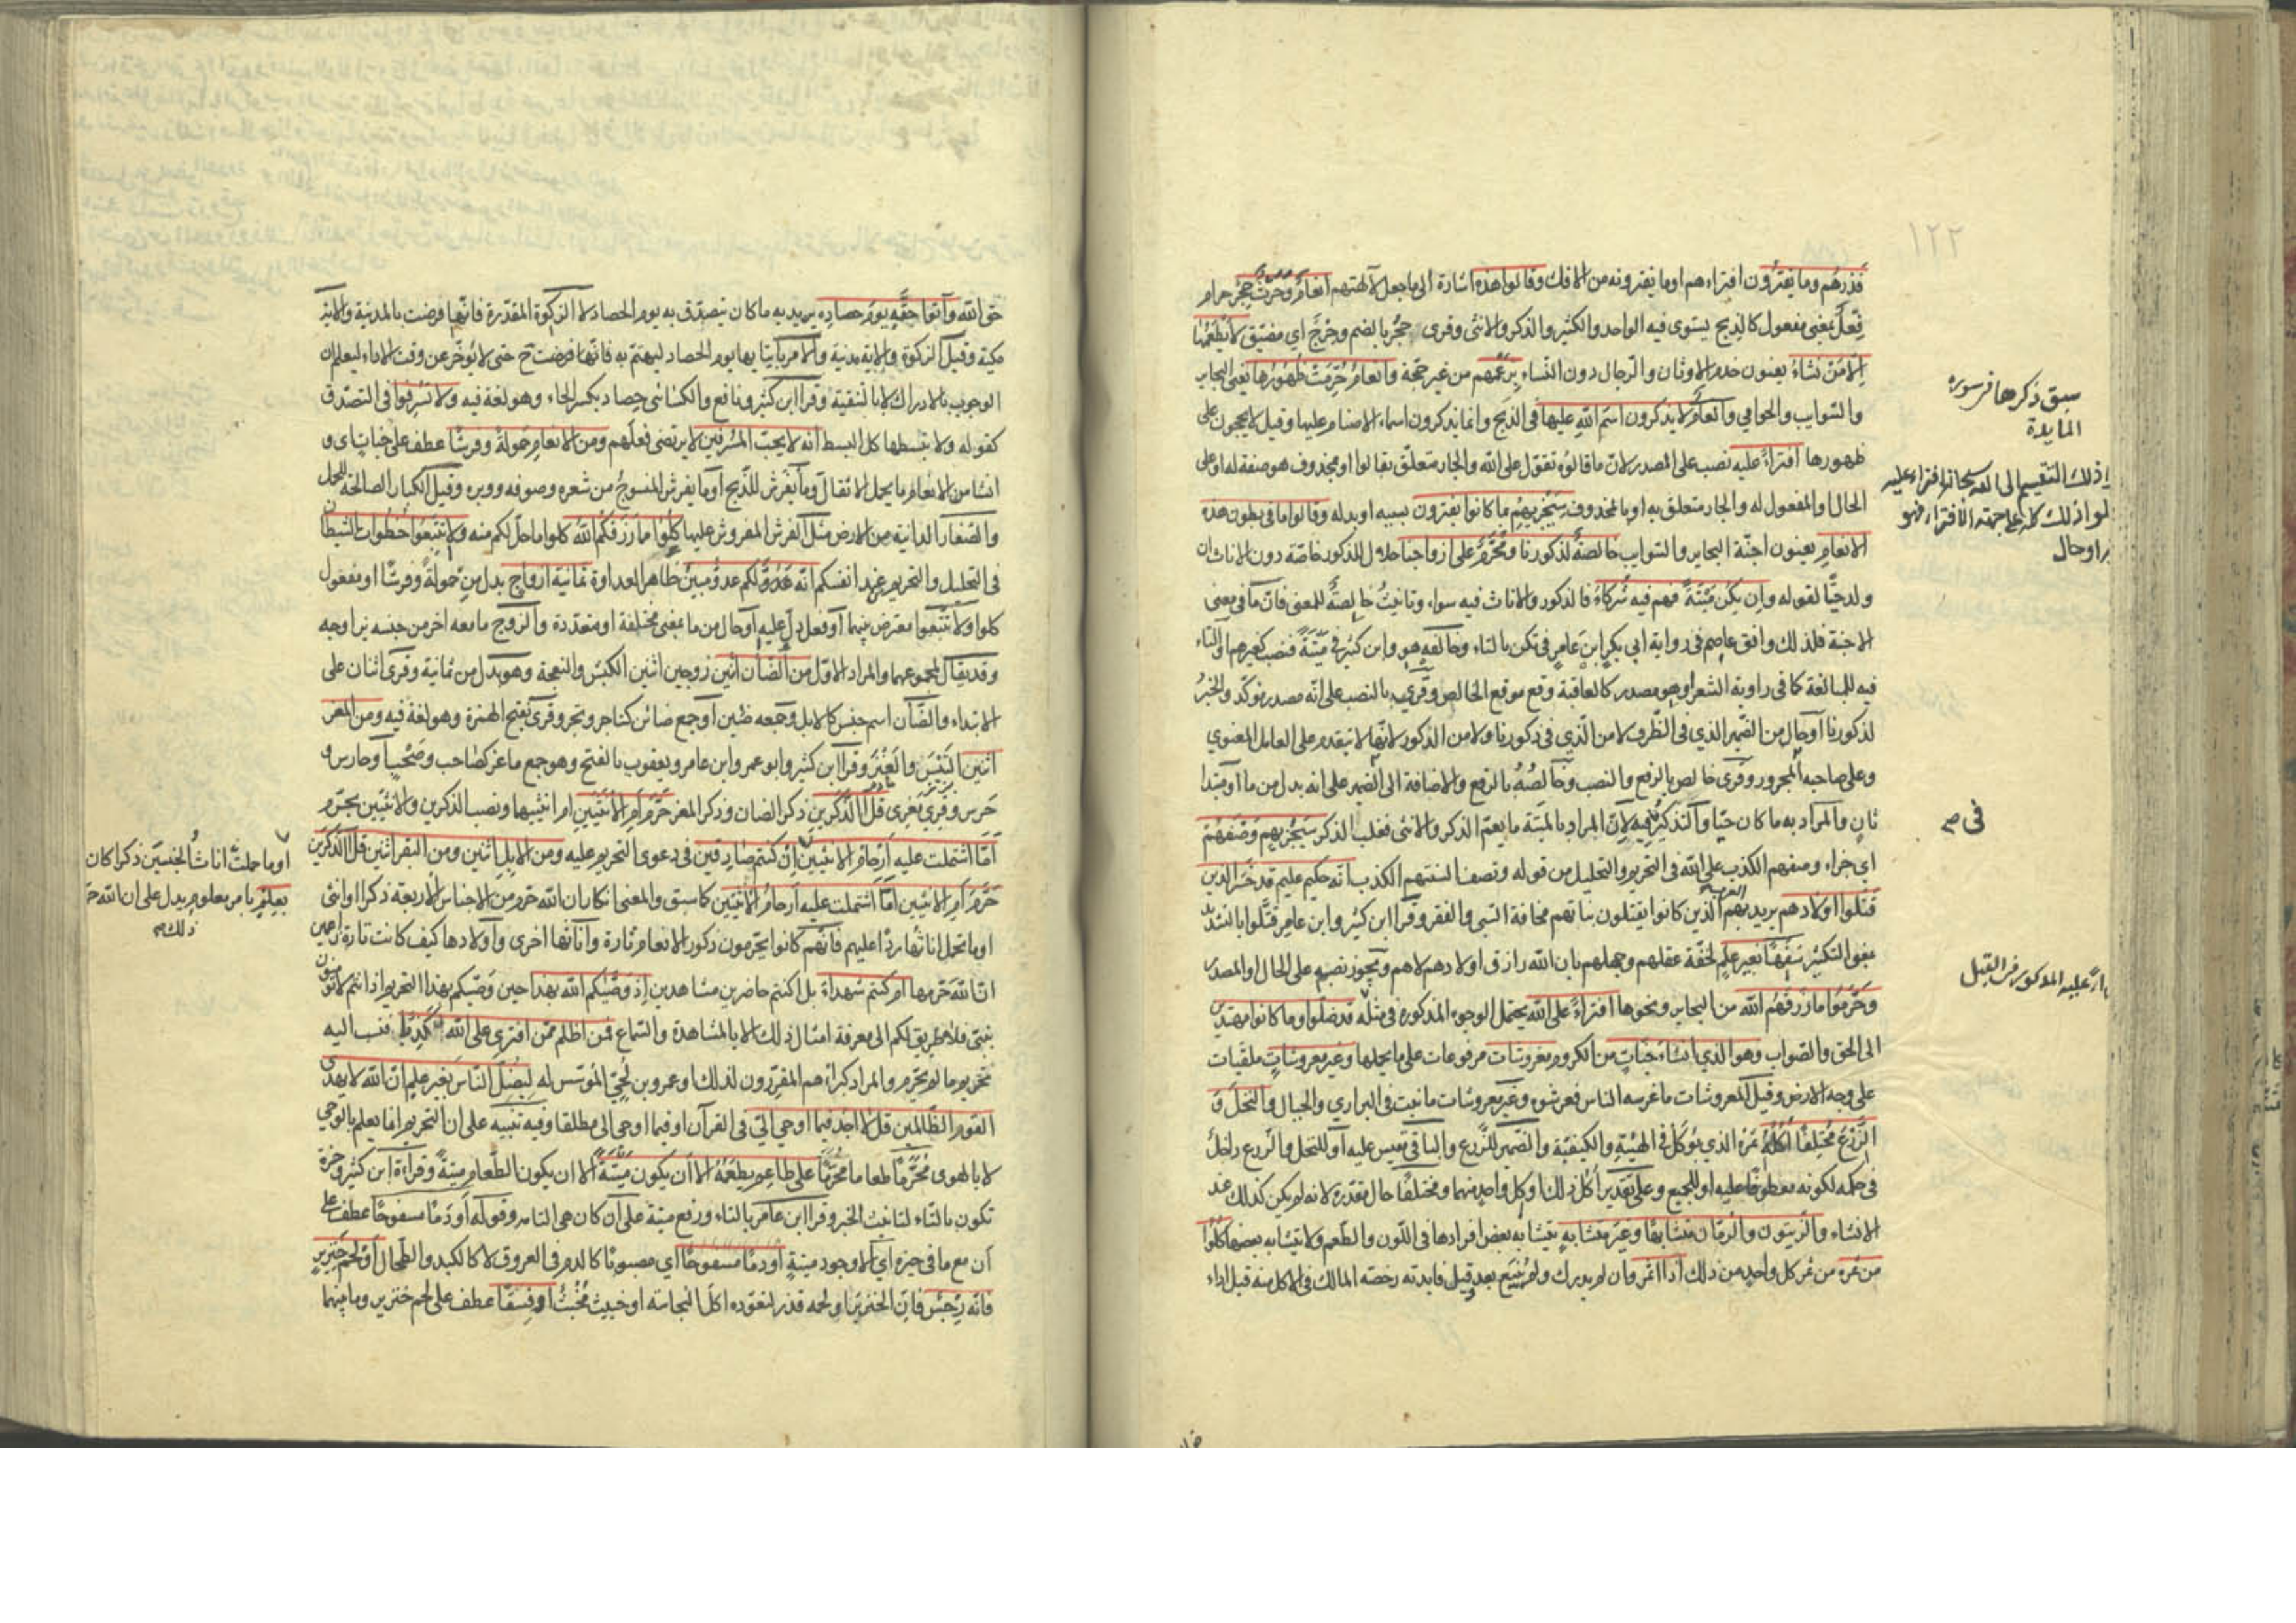 ١٢٢
فَذَرْهُم وما يفترون افتراءهم اوما يفترونه من الافك وقالوا هذه اشارة الى ما جعل لآلهتهم انعام وحرث حجر حرام
فِعْل بمعنى مفعول كالذبح يستوى فيه الواحد والكثير والذكر والانثى وقرى حُجْر بالضم وحرج اي مضيق لا يطعمها
الا من نشاء يعنون خدم الاوثان والرجال دون النساء بزعمهم من غير حجة وانعام حرمت ظهورها يعنى البحاير
والسوايب والحوامي وانعام لا يذكرون اسم الله عليها فى الذبح وانما يذكرون اسماء الاصنام عليها وقيل لا يحجون على
ظهورها افتراءً عليه نصب على المصدر لان ما قالوه تقوّل على الله والجار متعلق بقالوا او محذوف هو صفة له او على
الحال او المفعول له والجار متعلق به او بالمحذوف سيجزيهم بما كانوا يفترون بسببه او بدله وقالوا ما فى بطون هذه
الانعام يعنون اجنّة البحاير والسوايب خالصة لذكورنا ومحرّم على ازواجنا حلال للذكور خاصّة دون الاناث ان
ولد حيًّا لقوله وان يكن ميتةً فهم فيه شركاءُ فالذكور والاناث فيه سواء وتانيث خالصة للمعنى فان ما فى معنى
الاجنة فلذلك وافق عاصم فى رواية ابى بكر ابن عامر فى تكن بالتاء وخالفه هو وابن كثير فى ميتة فنصب كغيرهم او التاء
فيه للمبالغة كما فى راوية الشعر او هو مصدر كالعافية وقع موقع الخالص وقرى بالنصب على انّه مصدر موكد والخبر
لذكورنا او حال من الضمير الذي فى الظرف لا من الذي فى ذكورنا ولا من الذكور لانها لا يتقدم على العامل المعنوي
وعلى صاحبه المجرور وقرى خالص بالرفع والنصب وخالصُهُ بالرفع والاضافة الى الضمير على انه بدل من ما او مبتدا
ثانٍ والمراد به ما كان حيّا والتذكير فيه لانّ المراد بالميتة ما يعم الذكر والانثى فغلب الذكر سيجزيهم وصفهم
اي جزاء وصفهم الكذب على الله فى التحريم والتحليل من قوله وتصف السنتهم الكذب انه حكيم عليم قد خسر الذين
قتلوا اولادهم يريد بهم العرب الذين كانوا يقتلون بناتهم مخافة السبي والفقر وقرا ابن كثير وابن عامر قتّلوا بالتشديد
بمعنى التكثير سفهًا بغير علم لخفة عقلهم وجهلهم بان الله رازق اولادهم لاهم ويجوز نصبه على الحال او المصدر
وحرّموا ما رزقهم الله من البحاير ونحوها افتراءً على الله يحتمل الوجوه المذكورة فى مثله قد ضلّوا وما كانوا مهتدين
الى الحق والصواب وهو الذي انشاء جنات من الكروم معروشات مرفوعات على ما يحملها وغير معروشات ملقيات
على وجه الارض وقيل المعروشات ما غرسه الناس فعرشوه وغير معروشات ما نبت فى البراري والجبال والنخل و
الزرع مختلفًا اُكُلُه ثمره الذي يؤكل فى الهيئة والكيفيّة والضمير للزرع والباقى مقيس عليه او للنخل والزرع داخل
فى حكمه لكونه معطوفًا عليه او للجميع وعلى تقدير اكل ذلك او كل واحد منهما ومختلفًا حال مقدرة لانه لم يكن كذلك عند
الانشاء والزيتون والرمّان متشابهًا وغير متشابه يتشابه بعض افرادها فى اللون والطعم ولا يتشابه بعضها كلوا
من ثمره من ثمر كل واحد من ذلك اذا اثمر وان لم يدرك ولم يَيْنع بعد وقيل فايدته رخصة المالك فى الاكل منه قبل اداء
سبق ذكرها فى سوره
المايدة
فى صح
حق الله وآتوا حقّه يوم حصاده يريد به ما كان يتصدق به يوم الحصاد لا الزكوة المقدرة فانها فرضت بالمدينة والاية
مكية وقيل الزكوة والاية مدنية والامر باتيانها يوم الحصاد ليهتم به فانها فرضت ح حتى لا يؤخّر عن وقت الاداء ليعلم ان
الوجوب بالادراك لا بالتنقية وقرا ابن كثير ونافع والكسائى حِصاد بكسر الحاء وهو لغة فيه ولا تسرفوا فى التصدّق
كقوله ولا تبسطها كل البسط انه لا يحب المسرفين لا يرتضى فعلهم ومن الانعام حمولةً وفرشًا عطف على جنات اى و
انشا من الانعام ما يحمل الاثقال وما يفرش للذبح او ما يفرش المنسوج من شعره وصوفه ووبره وقيل الكبار الصالحة للحمل
والصغار الدانية من الارض مثل الفرش المفروش عليها كلوا مما رزقكم الله كلوا ما حلّ لكم منه ولا تتبعوا خطوات الشيطان
فى التحليل والتحريم من عند انفسكم انّه لكم عدوّ مبين ظاهر العداوة ثمانية ازواج بدل من حمولةً وفرشًا او مفعول
كلوا ولا تتبعوا معترض بينهما او فعل دل عليه او حال من ما بمعنى مختلفة او متعددة والزوج ما معه اخر من جنسه يزاوجه
وقد يقال لمجموعهما والمراد الاوّل من الضأن اثنين زوجين اثنين الكبش والنعجة وهو بدل من ثمانية وقرى اثنان على
الابتداء والضأن اسم جنس كالابل وجمعه ضئين او جمع ضائن كتاجر وتجر وقرى بفتح الهمزة وهو لغة فيه ومن المعز
اثنين التيس والعنز وقرا ابن كثير وابو عمرو وابن عامر ويعقوب بالفتح وهو جمع ماعز كصاحب وصحب او حارس و
حَرَس وقرى بِعْزى قل آلذّكرين ذكر الضان وذكر المعز حرّم ام الانثيين ام انثييهما ونصب الذكرين والانثيين بحرّم
امّا اشتملت عليه ارحام الانثيين ان كنتم صادقين فى دعوى التحريم عليه ومن الابل اثنين ومن البقر اثنين قل آلذكرين
حرّم ام الانثيين امّا اشتملت عليه ارحام الانثيين كما سبق والمعنى انكار ان الله حرّم من الاجناس الاربعة ذكرا او انثى
او ما تحمل اناثها ردّا عليهم فانهم كانوا يحرّمون ذكور الانعام تارة واناثها اخرى واولادها كيف كانت تارة زاعمين
انّ الله حرّمها ام كنتم شهداء بل اكنتم حاضرين مشاهدين اذ وصّيكم الله بهذا حين وصّيكم بهذا التحريم اذ انتم لا تؤمنون
بنبيّ فلا طريق لكم الى معرفة امثال ذلك الا بالمشاهدة والسماع فمن اظلم ممّن افترى على الله كذبًا فنسب اليه
تحريم ما لم يحرّم والمراد كبراءهم المقرّرون لذلك او عمرو بن لحيّ المؤسس له ليضلّ الناس بغير علم انّ الله لا يهدى
القوم الظالمين قل لا اجد فيما اوحي اليّ فى القرآن او فيما اوحي الىّ مطلقا وفيه تنبيه على ان التحريم انما يعلم بالوحي
لا بالهوى محرّمًا طعاما محرّمًا على طاعم يطعمه الا أن يكون ميتةً الا ان يكون الطعام ميتةً وقراءة ابن كثير وحمزة
تكون بالتاء لتانيث الخبر وقرا ابن عامر بالتاء ورفع ميتة على أنّ كان هى التامة وقوله أو دمًا مسفوحًا عطف على
أن مع ما فى حيزه اي الا وجود ميتةٍ او دمًا مسفوحًا اي مصبوبًا كالدم فى العروق لا كالكبد والطحال او لحم خنزير
فانّه رجس فانّ الخنزير او لحمه قذر لتعوّده اكل النجاسة او خبيث مُخْبِث او فسقًا عطف على لحم خنزير وما بينهما
اوما حملت اناث الجنسين ذكرا كان
بعلم بامر معلوم يدل على ان الله حرّ
ذلك صح